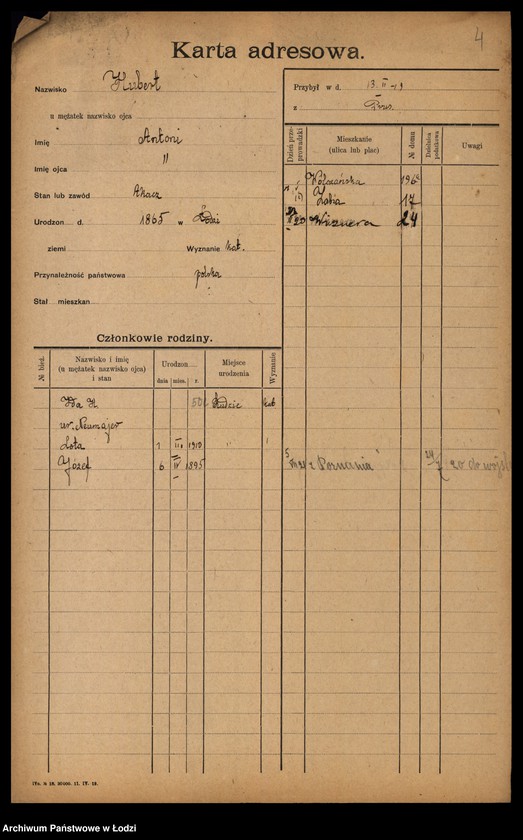 4
Karta adresowa.
Nazwisko Hubert
u mężatek nazwisko ojca
Imię Antoni
Imię ojca "
Stan lub zawód tkacz
Urodzon d. 1865 w Łodzi
ziemi Wyznanie kat.
Przynależność państwowa polska
Stał mieszkan
Przybył w d. 13. II 19
z Prus.
Dzień przeprowadzki
Mieszkanie (ulica lub plac)
№ domu
Dzielnica podatkowa
Uwagi
Wólczańska 196
Zakia 17
20 Wiznera 24
Członkowie rodziny.
№ bież.
Nazwisko i imię (u mężatek nazwisko ojca) i stan
Urodzon
data mies. r.
Miejsce urodzenia
Wyznanie
Ida H 50 kat
ur. Neumajer
Lota 1 III 1910 "
Józef 6 IV 1895
5 z Poznania 20 do wojsk
IVa. № 18. 20000. 11. IV. 19.
Archiwum Państwowe w Łodzi